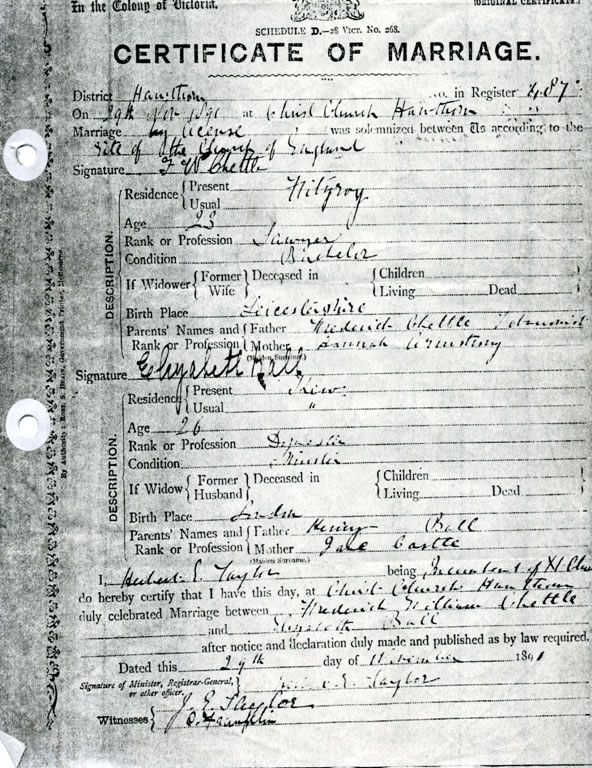 In the Colony of Victoria.
[ORIGINAL CERTIFICATE]
SCHEDULE D.—28 VICT. No. 268.
CERTIFICATE OF MARRIAGE.
District Hawthorn No. in Register 487
On 29th Nov 1891 at Christ Church Hawthorn
Marriage by license was solemnized between Us according to the
of the Church of England
Signature F W Chettle
Residence { Present Fitzroy
Usual
Age 23
Rank or Profession
Condition Bachelor
If Widower { Former Wife } Deceased in { Children
Living Dead }
Birth Place Leicestershire
Parents' Names and Rank or Profession { Father Frederick Chettle
Mother Hannah Armstrong
(Maiden Surname.)
Signature Elizabeth Ball
Residence { Present Kew
Usual "
Age 26
Rank or Profession Domestic
Condition Spinster
If Widow { Former Husband } Deceased in { Children
Living Dead }
Birth Place London
Parents' Names and Rank or Profession { Father Henry Ball
Mother Jane Castle
(Maiden Surname.)
I, Herbert E. Taylor being Incumbent of Xt
do hereby certify that I have this day, at Christ Church Hawthorn
duly celebrated Marriage between Frederick William Chettle
and Elizabeth Ball
after notice and declaration duly made and published as by law required.
Dated this 29th day of November 1891
Signature of Minister, Registrar-General, or other officer. E. Taylor
Witnesses { J. E. Taylor
C. Framplin
DESCRIPTION.
DESCRIPTION.
By Authority: Government Printer, Melbourne.